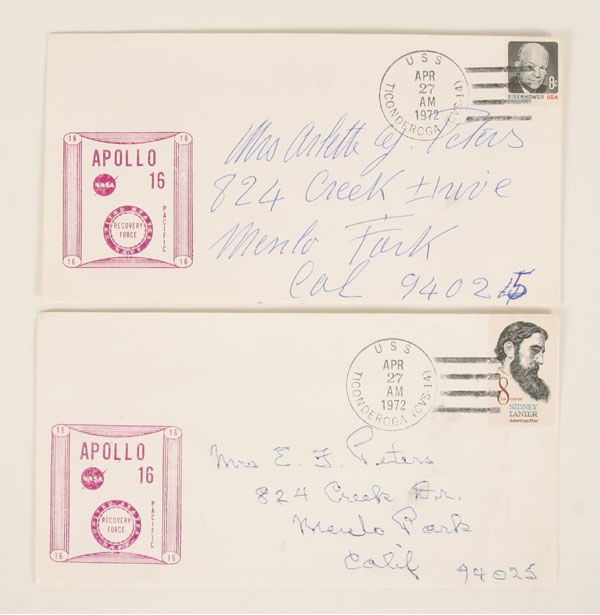 USS
APR
27
AM
1972
TICONDEROGA (CVS-14)
EISENHOWER USA
8¢
16 16
APOLLO
16
NASA
PACIFIC
UNITED STATES
RECOVERY
FORCE
NAVY
16 16
Mrs Arlette G. Peters
824 Creek Drive
Menlo Park
Cal 94025
USS
APR
27
AM
1972
TICONDEROGA (CVS-14)
8
SIDNEY
LANIER
American Poet
16 16
APOLLO
16
NASA
PACIFIC
UNITED STATES
RECOVERY
FORCE
NAVY
16 16
Mrs E. F. Peters
824 Creek Dr.
Menlo Park
Calif 94025